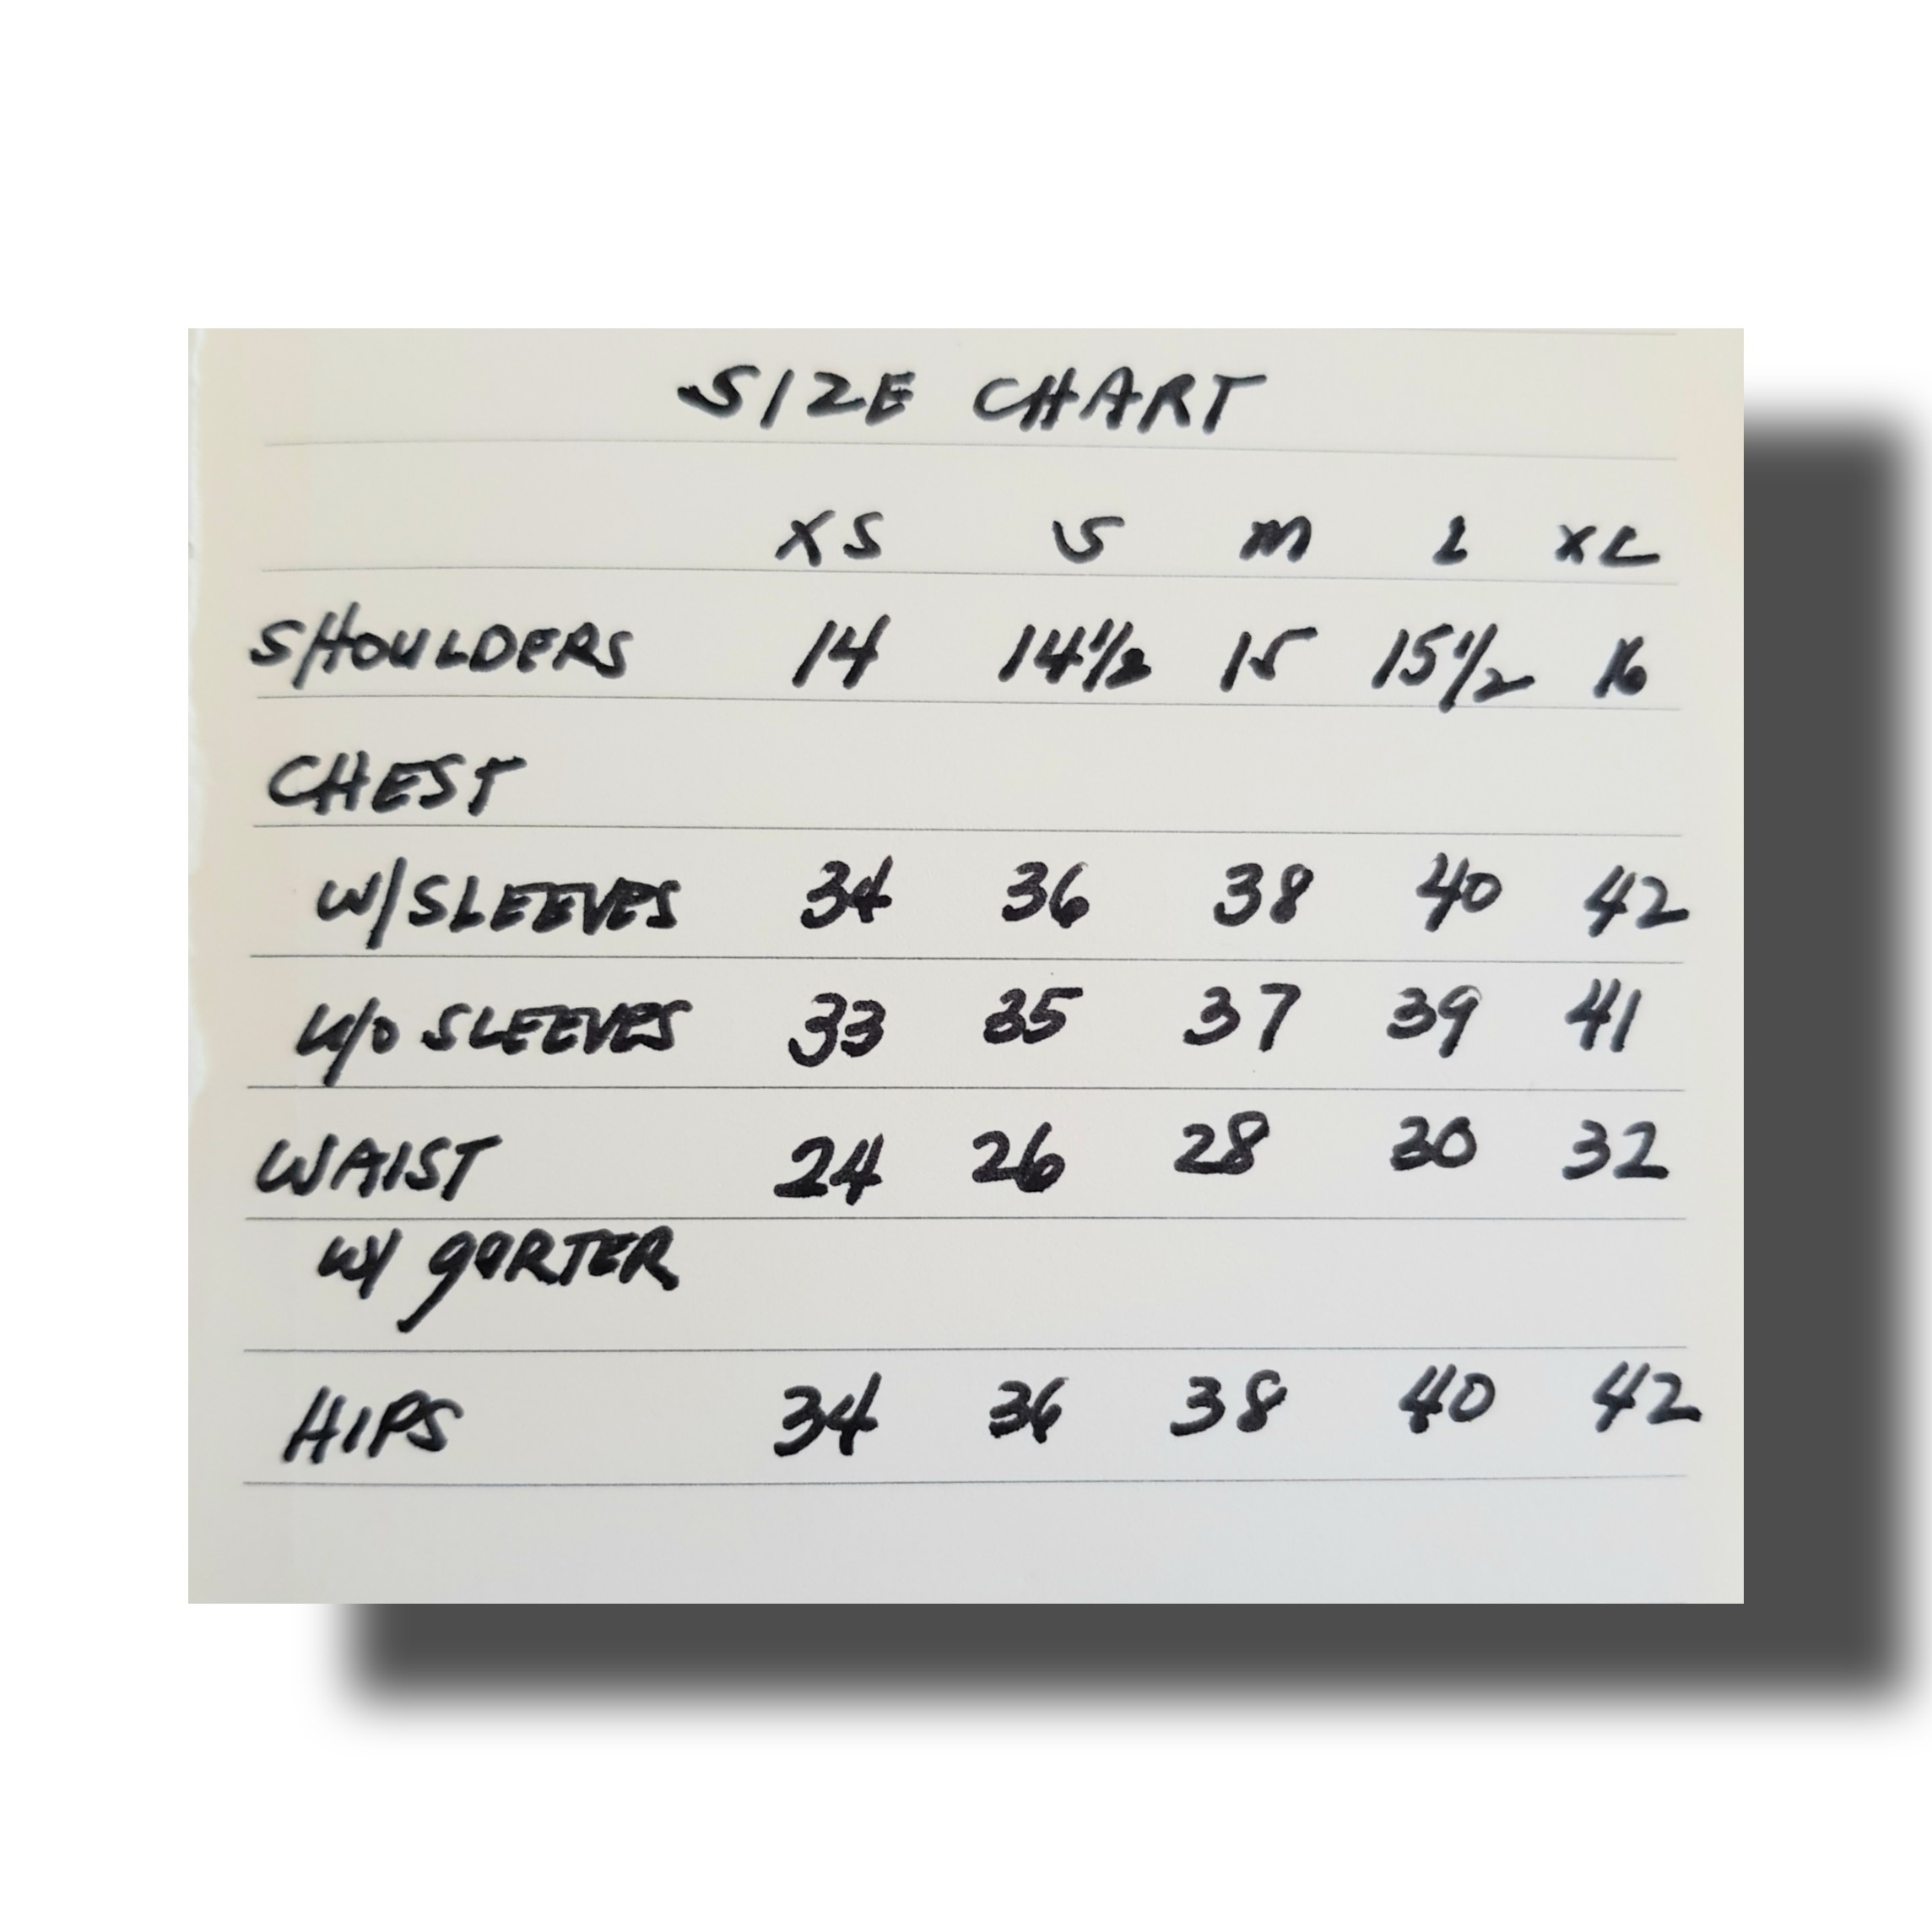 SIZE CHART
XS S M L XL
SHOULDERS 14 14 1/2 15 15 1/2 16
CHEST
W/SLEEVES 34 36 38 40 42
W/O SLEEVES 33 35 37 39 41
WAIST 24 26 28 30 32
W/ gARTER
HIPS 34 36 38 40 42